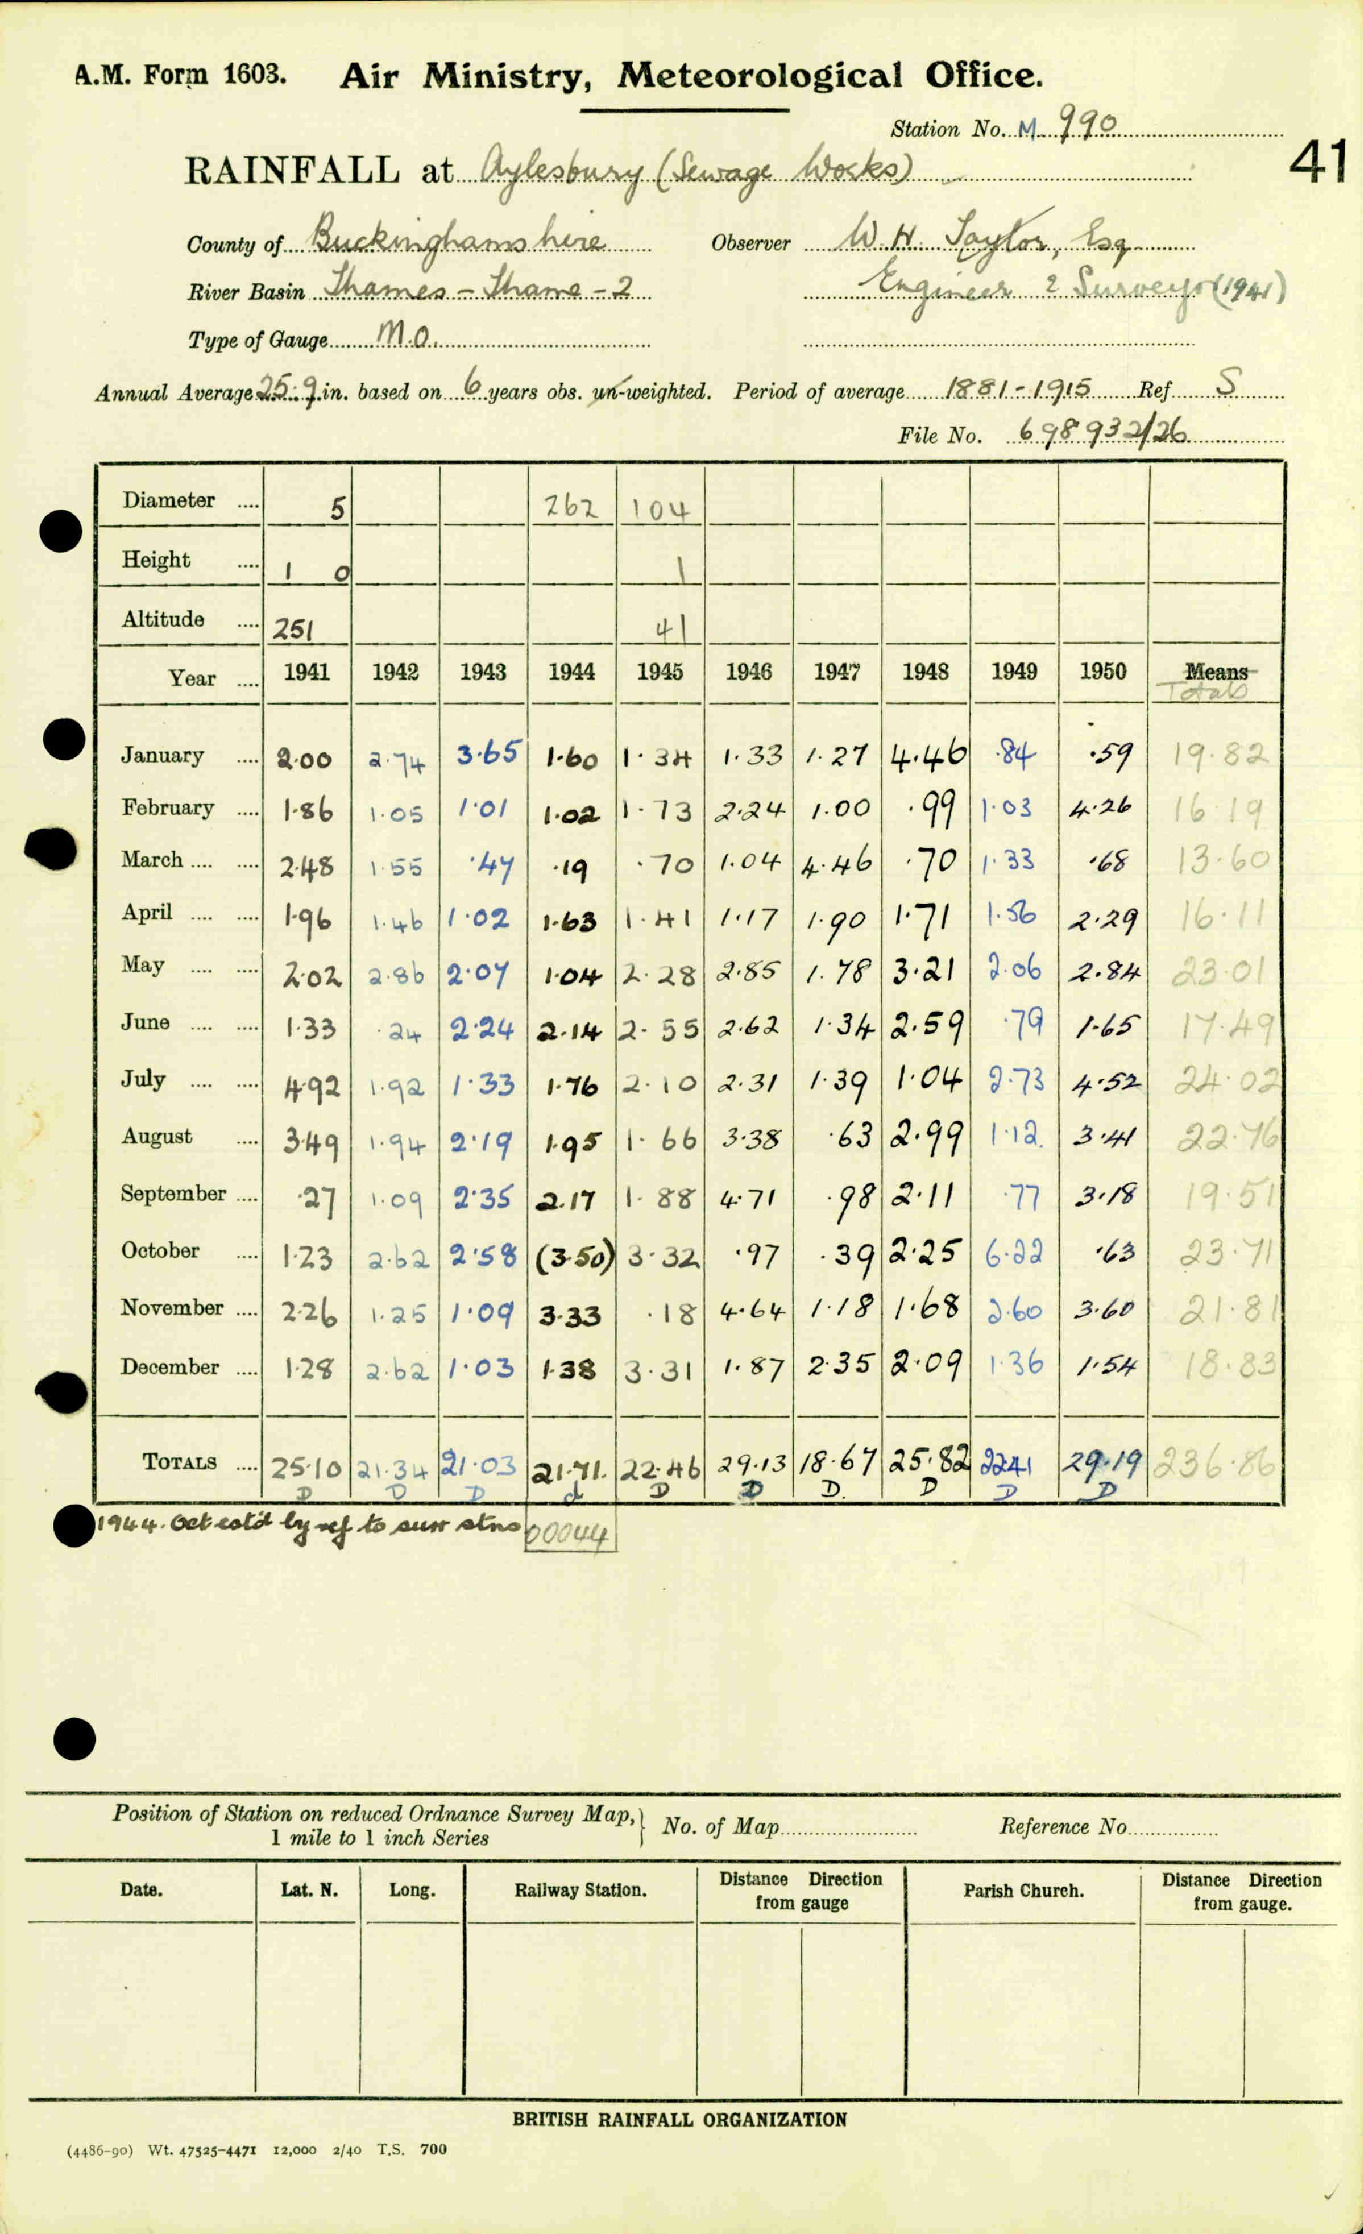 A.M. Form 1603. Air Ministry, Meteorological Office.
Station No. M 990
41
RAINFALL at Aylesbury (Sewage Works)
County of Buckinghamshire Observer W. H. Taylor, Esq
River Basin Thames - Thame - 2 Engineer & Surveyor (1941)
Type of Gauge M.O.
Annual Average 25.9 in. based on 6 years obs. un-weighted. Period of average 1881-1915 Ref S
File No. 698932/26
Diameter .... 5 262 104
Height .... 1 0 1
Altitude .... 251 41
Year .... 1941 1942 1943 1944 1945 1946 1947 1948 1949 1950 Means
Totals
January .... 2.00 2.74 3.65 1.60 1.34 1.33 1.27 4.46 .84 .59 19.82
February .... 1.86 1.05 1.01 1.02 1.73 2.24 1.00 .99 1.03 4.26 16.19
March .... .... 2.48 1.55 .47 .19 .70 1.04 4.46 .70 1.33 .68 13.60
April .... .... 1.96 1.46 1.02 1.63 1.41 1.17 1.90 1.71 1.56 2.29 16.11
May .... .... 2.02 2.86 2.07 1.04 2.28 2.85 1.78 3.21 2.06 2.84 23.01
June .... .... 1.33 .24 2.24 2.14 2.55 2.62 1.34 2.59 .79 1.65 17.49
July .... .... 4.92 1.92 1.33 1.76 2.10 2.31 1.39 1.04 2.73 4.52 24.02
August .... 3.49 1.94 2.19 1.95 1.66 3.38 .63 2.99 1.12 3.41 22.76
September .... .27 1.09 2.35 2.17 1.88 4.71 .98 2.11 .77 3.18 19.51
October .... 1.23 2.62 2.58 (3.50) 3.32 .97 .39 2.25 6.22 .63 23.71
November .... 2.26 1.25 1.09 3.33 .18 4.64 1.18 1.68 2.60 3.60 21.81
December .... 1.28 2.62 1.03 1.38 3.31 1.87 2.35 2.09 1.36 1.54 18.83
TOTALS .... 25.10 21.34 21.03 21.71. 22.46 29.13 18.67 25.82 22.41 29.19 236.86
D D D d D D D. D D D
1944. Oct est'd by ref to surr stns 00044
Position of Station on reduced Ordnance Survey Map, No. of Map Reference No.
1 mile to 1 inch Series
Date. Lat. N. Long. Railway Station. Distance Direction from gauge Parish Church. Distance Direction from gauge.
BRITISH RAINFALL ORGANIZATION
(4486-90) Wt. 47525-4471 12,000 2/40 T.S. 700